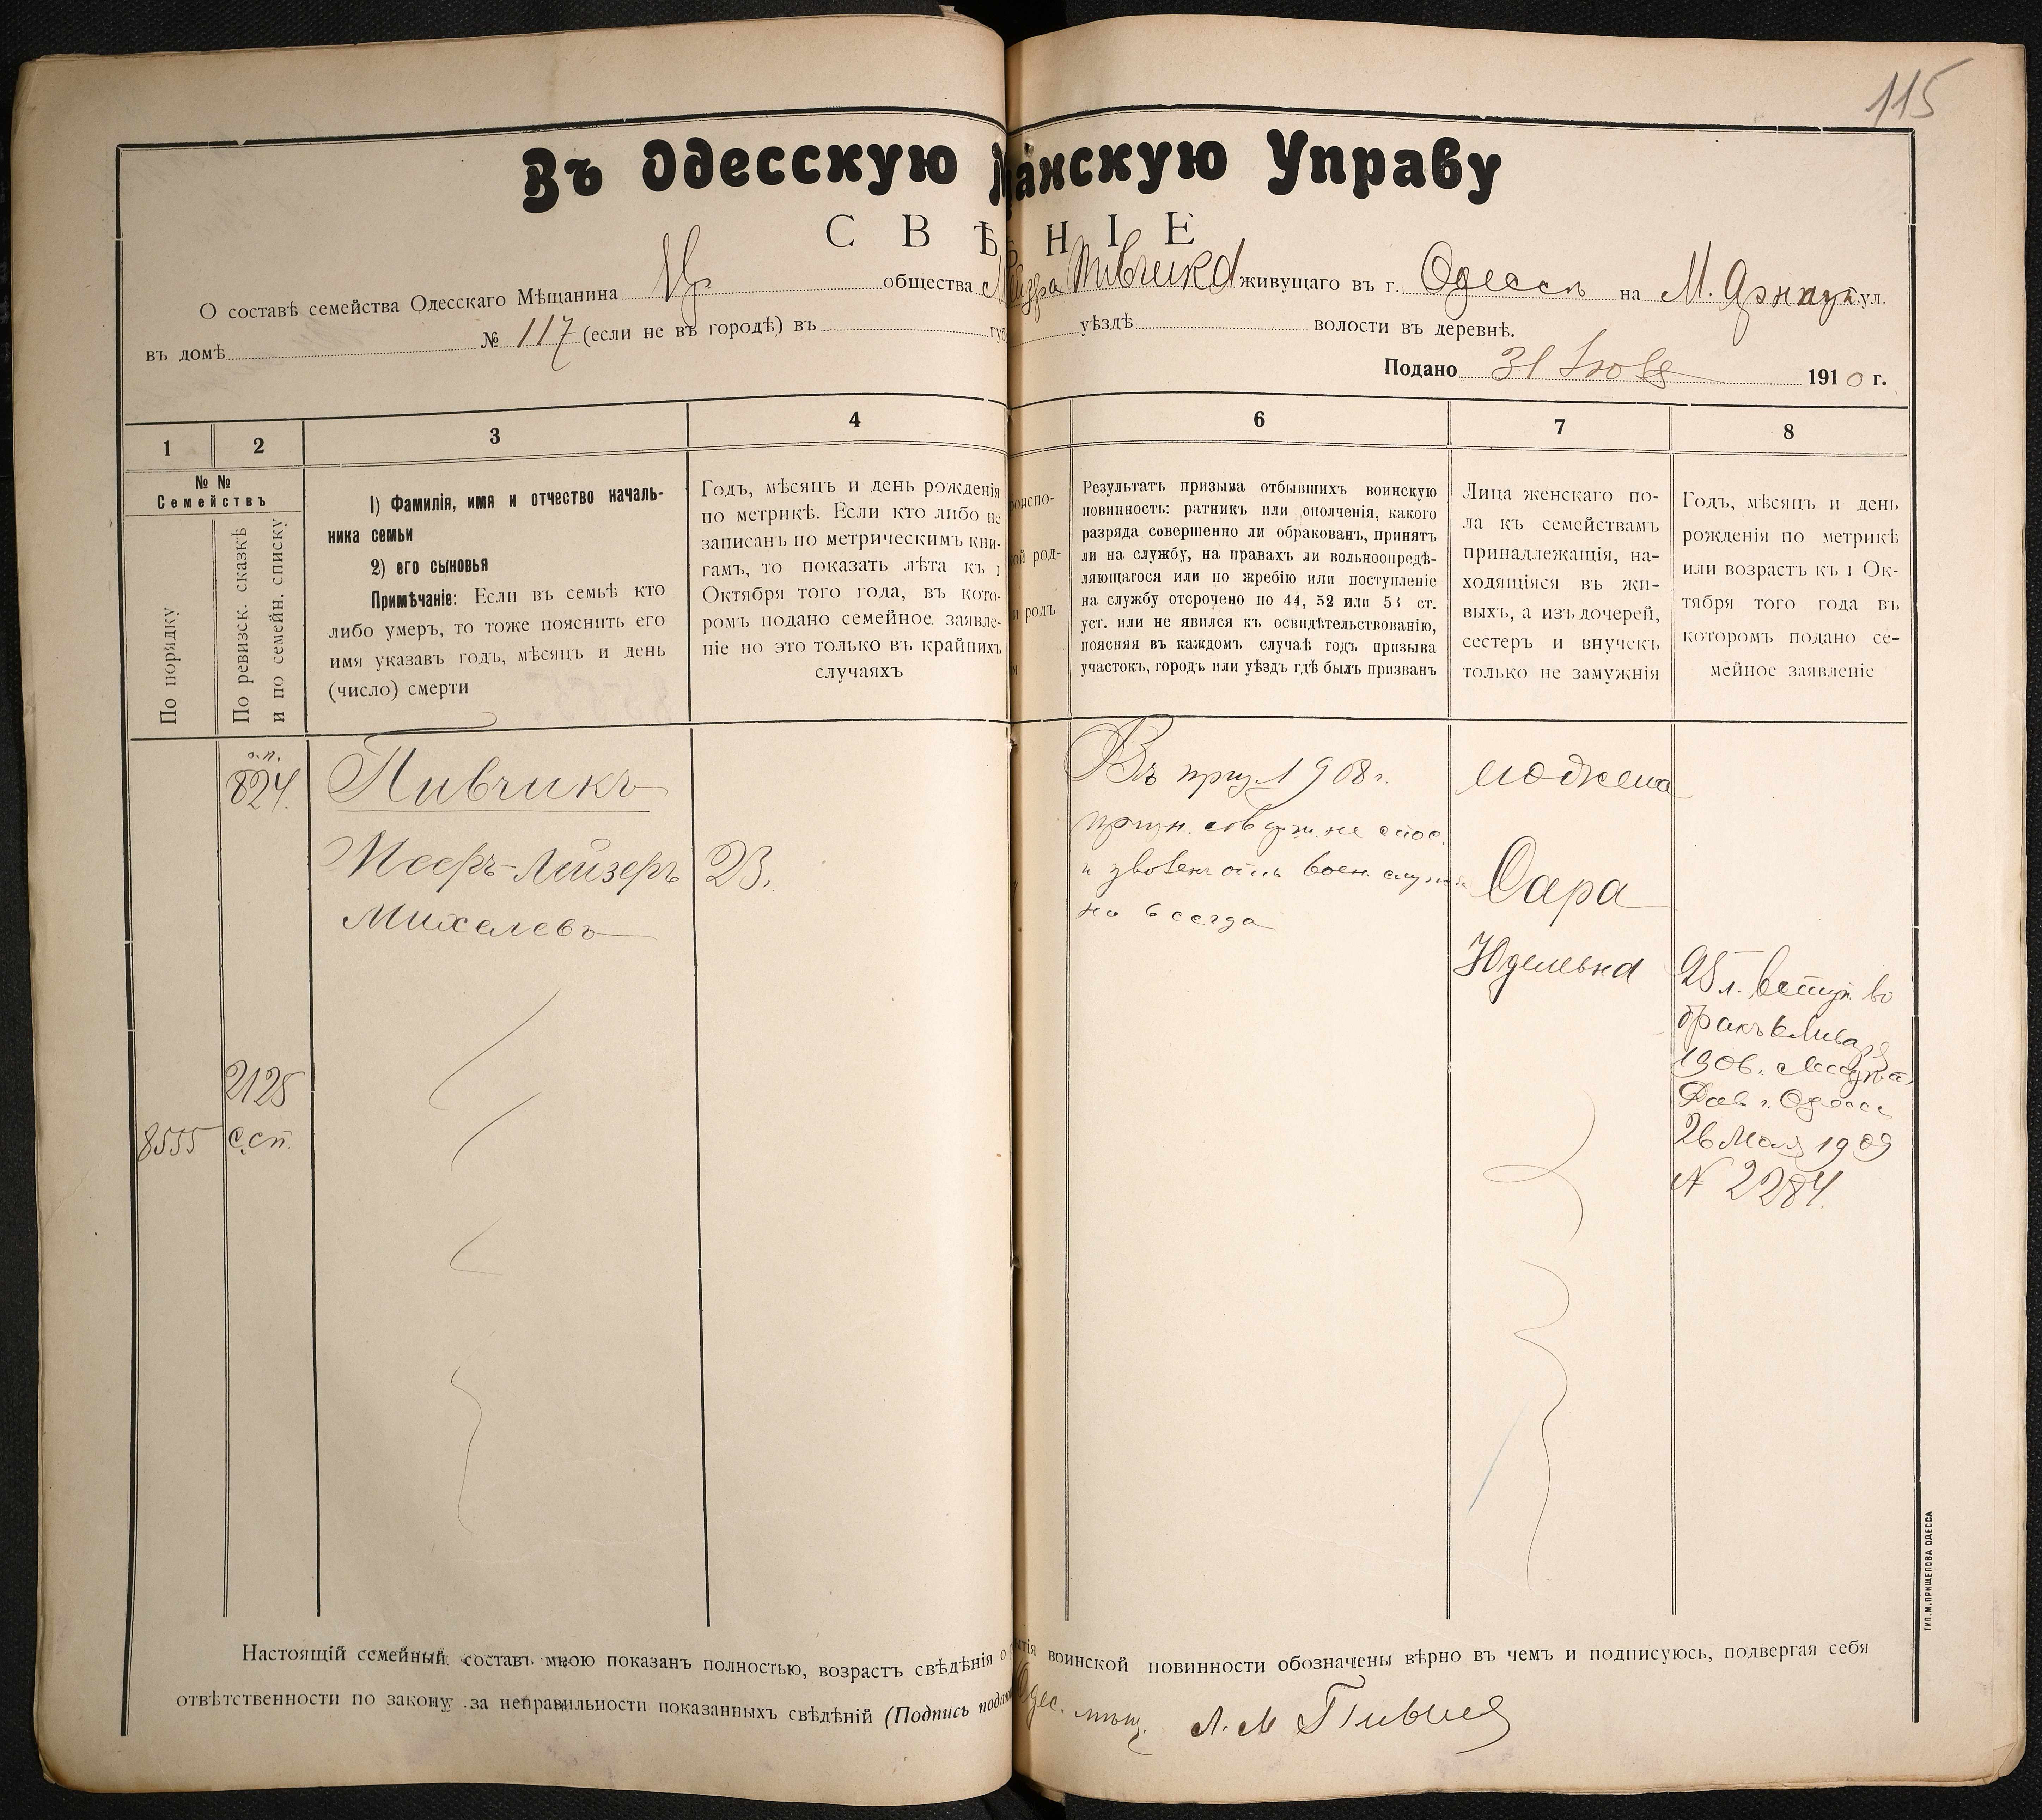 115
Въ Одесскую анскую Управу
С В Ѣ Н І Е
О составѣ семейства Одесскаго Мѣщанина общества Пивчика живущаго въ г. Одессѣ на М. Арнаут ул.
въ домѣ № 117 (если не въ городѣ) въ губ уѣздѣ волости въ деревнѣ.
Подано 31 1910 г.
1 2 3 4 6 7 8
№ №
Семействъ
По порядку
По ревизск. сказкѣ
и по семейн. списку
1) Фамилія, имя и отчество началь-
ника семьи
2) его сыновья
Примѣчаніе: Если въ семьѣ кто
либо умеръ, то тоже пояснить его
имя указавъ годъ, мѣсяцъ и день
(число) смерти
Годъ, мѣсяцъ и день рожденія
по метрикѣ. Если кто либо не
записанъ по метрическимъ кни-
гамъ, то показать лѣта къ 1
Октября того года, въ кото-
ромъ подано семейное заявле-
ніе но это только въ крайнихъ
случаяхъ
роиспо-
кой род-
и родъ
Результатъ призыва отбывшихъ воинскую
повинность: ратникъ или ополченія, какого
разряда совершенно ли обракованъ, принятъ
ли на службу, на правахъ ли вольноопредѣ-
ляющагося или по жребію или поступленіе
на службу отсрочено по 44, 52 или 53 ст.
уст. или не явился къ освидѣтельствованію,
поясняя въ каждомъ случаѣ годъ призыва
участокъ, городъ или уѣздъ гдѣ былъ призванъ
Лица женскаго по-
ла къ семействамъ
принадлежащія, на-
ходящіяся въ жи-
выхъ, а изъ дочерей,
сестеръ и внучекъ
только не замужнія
Годъ, мѣсяцъ и день
рожденія по метрикѣ
или возрастъ къ 1 Ок-
тября того года въ
которомъ подано се-
мейное заявленіе
824.
Пивчикъ
Мееръ-Лейзеръ 23.
Михелевъ
2125
8555 с.сп.
Въ приз. 1908 г.
призн. не спос.
боен. служ
на всегда
жена
Сара
Юделевна
25 л. вступ. во
бракъ
190
Рав. г. Одессы
26 Мая 1909
N 2284.
Настоящій семейный составъ мною показанъ полностью, возрастъ свѣдѣнія о тія воинской повинности обозначены вѣрно въ чемъ и подписуюсь, подвергая себя
отвѣтственности по закону за неправильности показанныхъ свѣдѣній (Подпись Одес. мѣщ. Л. М Пивчик
ТИП. М. ПРИЩЕПОВА ОДЕССА